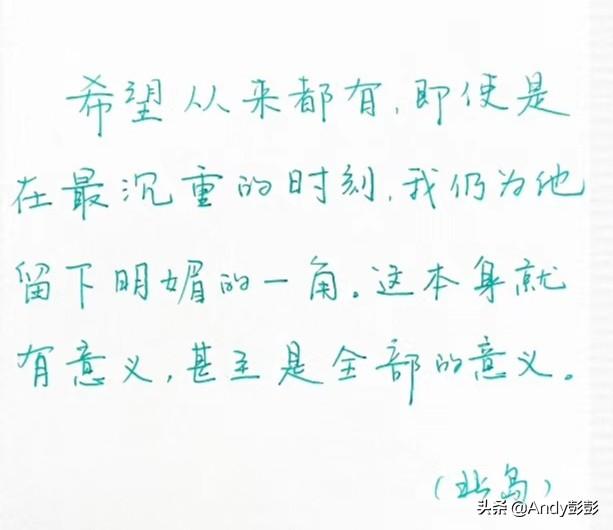 希望从来都有,即使是
在最沉重的时刻,我仍为他
留下明媚的一角。这本身就
有意义,甚至是全部的意义。
(北岛)
头条 @Andy彭彭